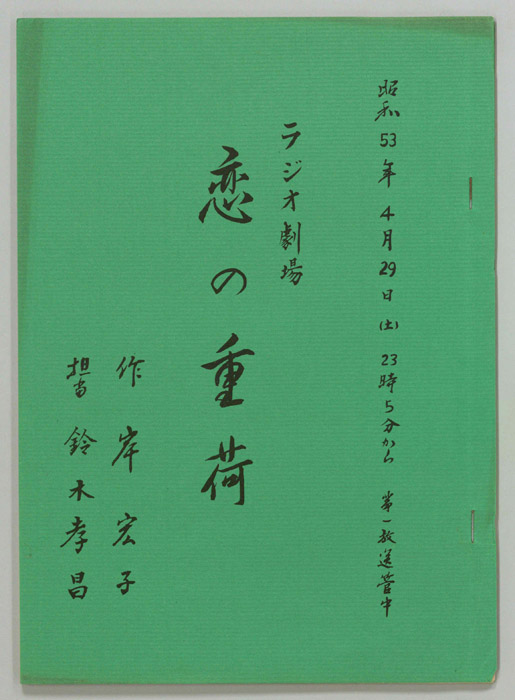 昭和53年4月29日(土) 23時5分から 第一放送管中
ラジオ劇場
恋の重荷
作 岸宏子
担当 鈴木孝昌